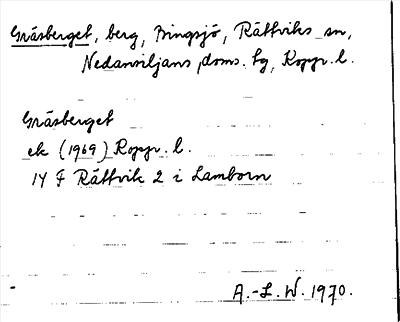 Gräsberget, berg, Bingsjö, Rättviks sn,
Nedansiljans doms. tg, Kopp. l.
Gräsberget
ek (1969) Kopp. l.
14 F Rättvik 2 i Lamborn
A.-L. W. 1970.